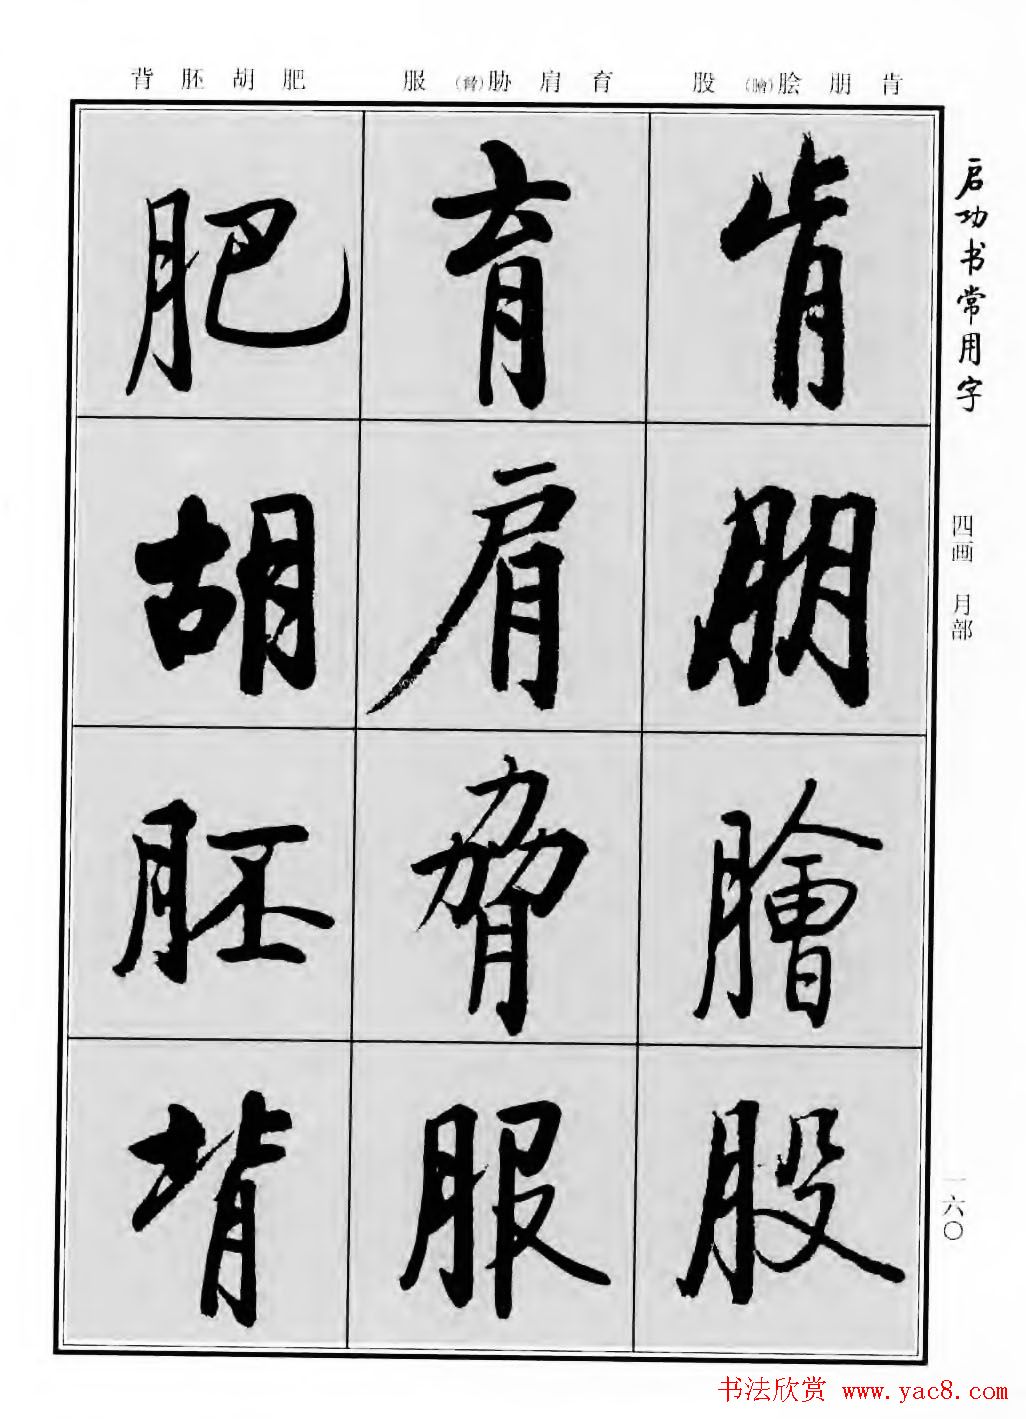 肯朋脍(膾)股
育肩胁(脅)服
肥胡胚背
启功书常用字
四画 月部
一六〇
肯
朋
膾
股
育
肩
脅
服
肥
胡
胚
背
书法欣赏 www.yac8.com